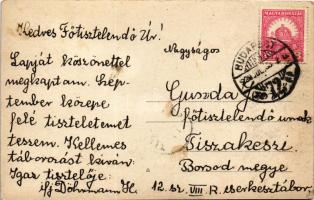 Kedves Főtisztelendő Úr!
Lapját köszönettel
megkaptam. Szep-
tember közepe
felé tiszteletemet
teszem. Kellemes
táborozást kiván.
Igaz tisztelője
ifj Döhrmann H.
MAGYARORSZÁG
BUDAPEST
72
Nagyságos
Gusnda
főtisztelendő urnak
Tiszakeszi
Borsod megye
12. sz. VIII. R. cserkésztábor.